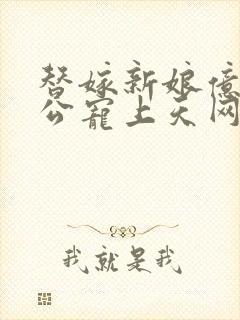 替嫁新娘億
公寵上天网
我就是我